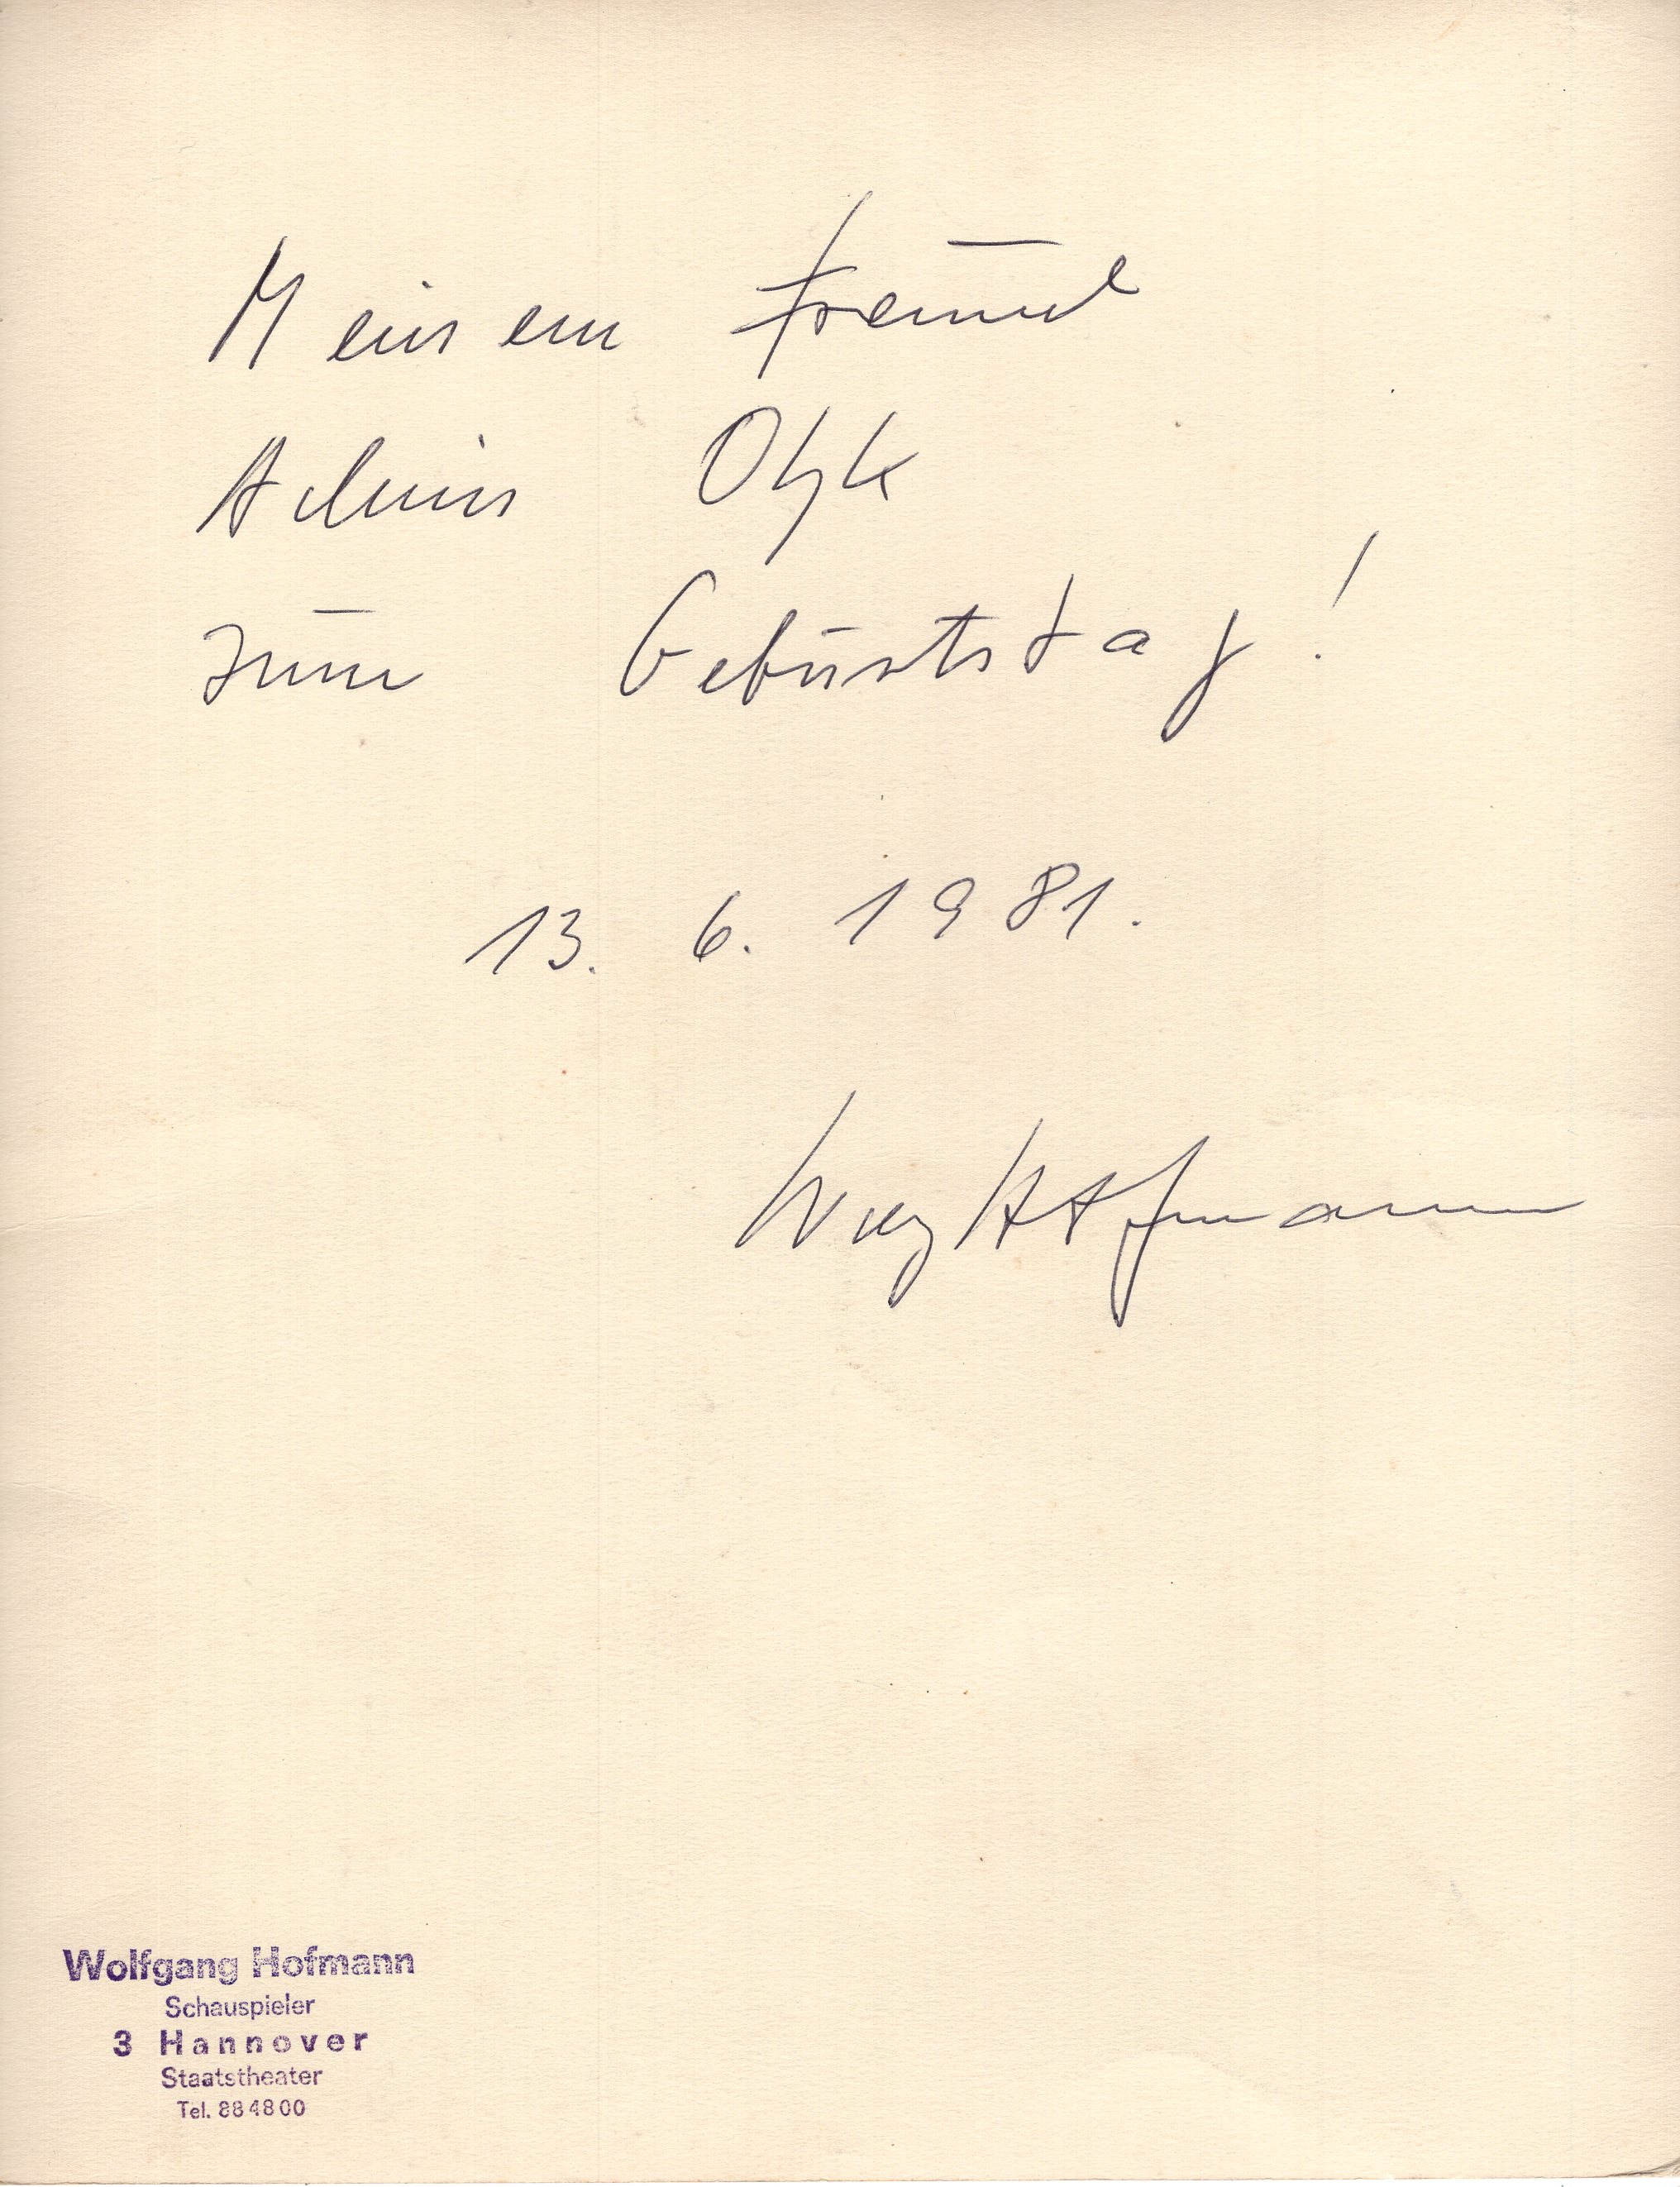 Meinem Freund
zum Geburtstag!
13. 6. 1981.
Hofmann
Wolfgang Hofmann
Schauspieler
3 Hannover
Staatstheater
Tel. 884800